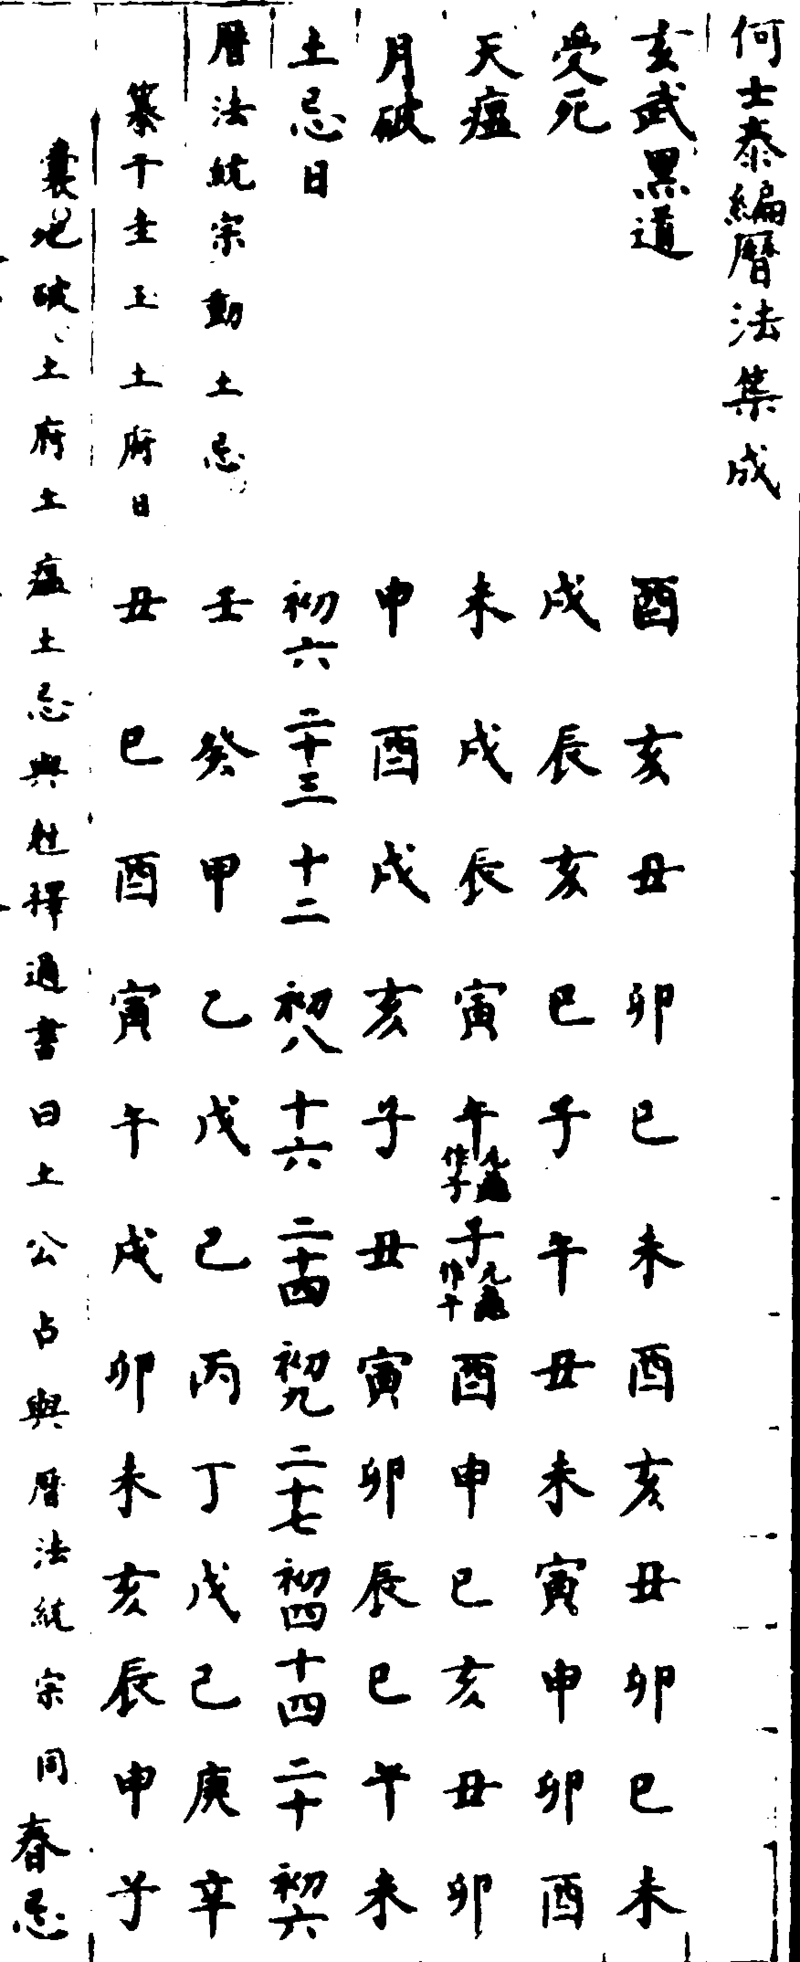 何士泰編曆法集成
玄武黑道 酉亥丑卯巳未酉亥丑卯巳未
受死 戌辰亥巳子午丑未寅申卯酉
天瘟 未戌辰寅午元龜作子子元龜作午酉申巳亥丑卯
月破 申酉戌亥子丑寅卯辰巳午未
土忌日 初六 二十三 十二 初八 十六 二十四 初九 二十七 初四 十四 二十 初六
曆法統宗動土忌 壬癸甲乙戊己丙丁戊己庚辛
纂干圭玉土府日 丑巳酉寅午戌卯未亥辰申子
囊地破土府土瘟土忌與性擇通書曰土公占與曆法統宗同 春忌